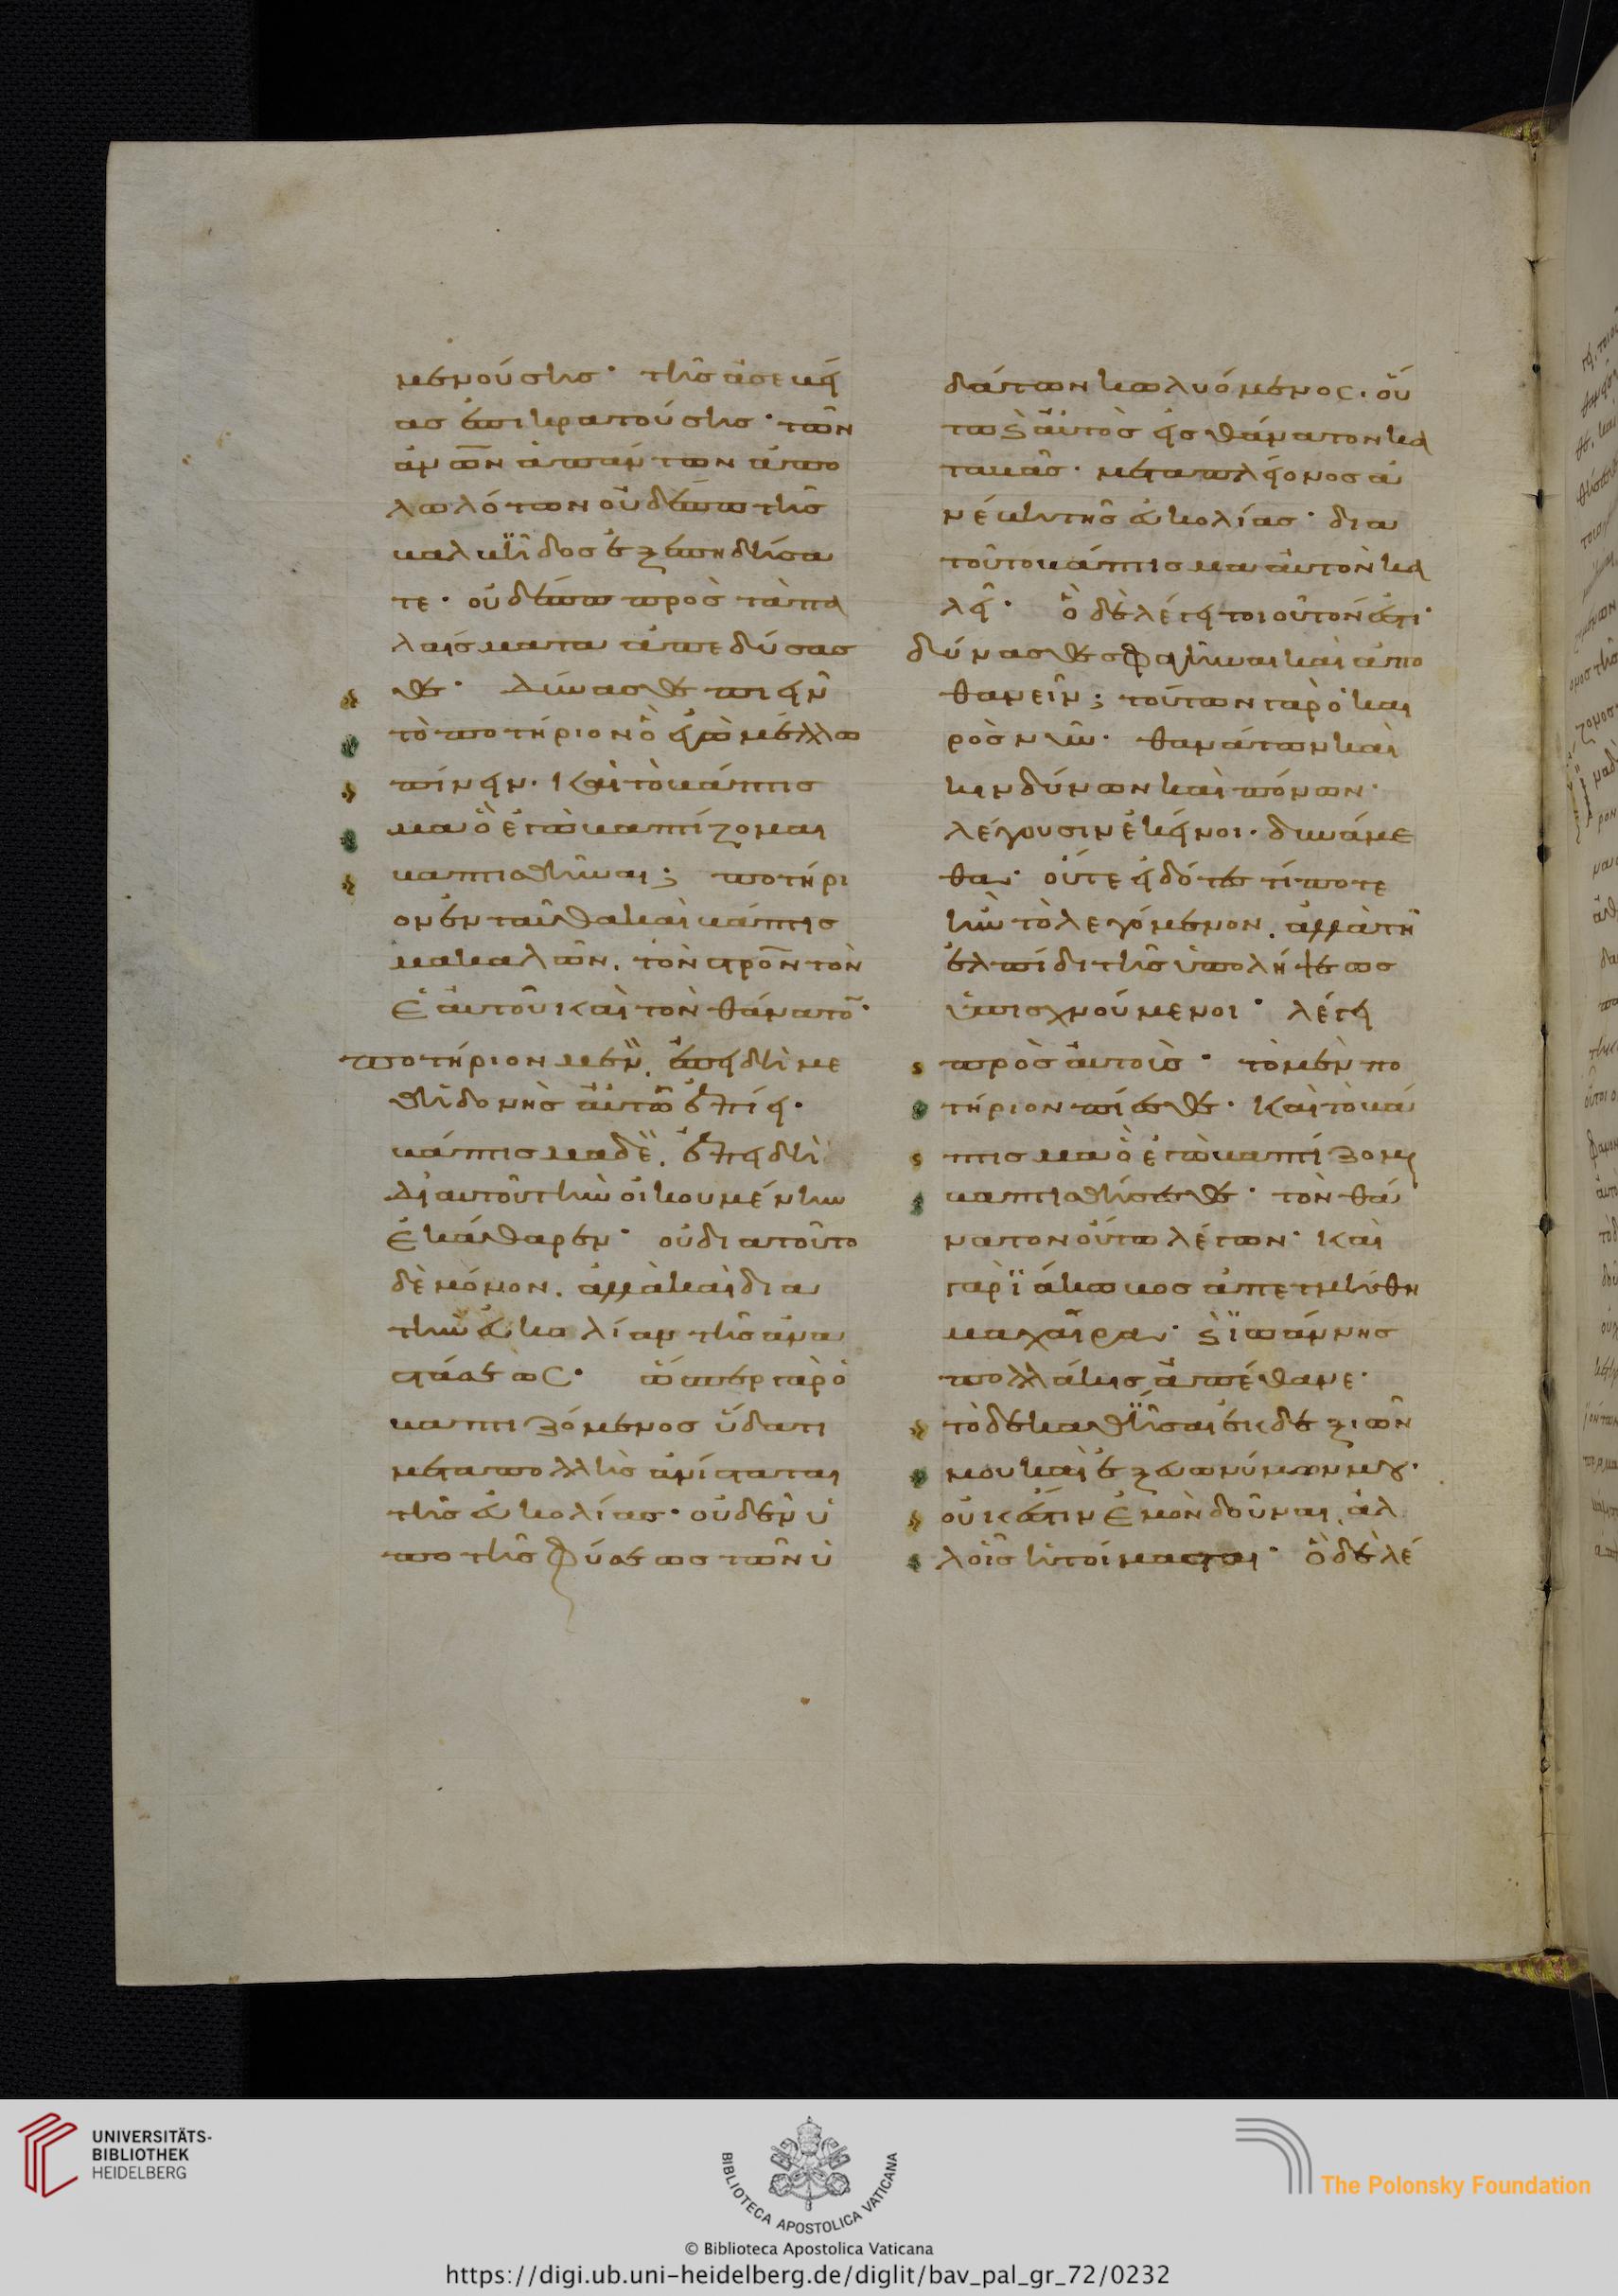 μενούσης· τῆς ἀσεβεί
ας ἐπικρατούσης· τῶν
ἀνων ἁπάντων ἀπο
λωλότων οὐδέπω τῆς
βαλβῖδος ἐξεπηδήσα
τε· οὐδέπω πρὸς τὰ πα
λαίσματα ἀπεδύσασ
θε· Δύνασθε πιεῖν
τὸ ποτήριον ὃ ἐγὼ μέλλω
πίνειν. Καὶ τὸ βάπτισ
μα ὃ ἐγὼ βαπτίζομαι
βαπτισθῆναι; ποτήρι
ον ἐνταῦθα καὶ βάπτισ
μα καλῶν. τὸν στρον τὸν
ἑαυτοῦ καὶ τὸν θάνατο̄·
ποτήριον μὲν, ἐπειδὴ με
θ ἡδονῆς αὐτῶ ἐπήει.
βάπτισμα δὲ, ἐπειδὴ
δι αυτοῦ τὴν οἰκουμένην
ἐκάθαρεν· οὐ διατοῦτο
δὲ μόνον. ἀλλὰ καὶ δια
τὴν εὐκολίαν τῆς ἀνα
στάσεως· ὥσπερ γὰρ ὁ
βαπτιζόμενος ὕδατι
μετα πολλῆς ἀνίσταται
τῆς εὐκολίας· οὐδὲν ὑ
πο τῆς φύσεως τῶν ὑ
δάτων κωλυόμενος. οὕ
τω ϛ αὐτὸς εἰς θάνατον κα
ταβὰς· μετα πλείονος ἀ
νέβη τῆς εὐκολίας· δια
τοῦτο βάπτισμα αὐτὸν κα
λεῖ· ὃ δὲ λέγει τοιοῦτόν ἐστι·
δύνασθε σφαγῆναι καὶ ἀπο
θανεῖν; τούτων γὰρ ὁ και
ρὸς νῦν· θανάτων καὶ
κινδύνων καὶ πόνων·
λέγουσιν ἐκεῖνοι· δυνάμε
θα· οὔτε εἰδότες τί ποτε
ἦν τὸ λεγόμενον. ἀλλὰ τῆ
ἐλπίδι τῆς ὑπολήψεως
ὑπισχνούμενοι· λέγει
πρὸς αὐτοὺς· τὸ μὲν πο
τήριον πίεσθε· Καὶ τὸ βά
πτισμα ὃ ἐγὼ βαπτίζομαι
βαπτισθήσεσθε· τὸν θά
νατον οὕτω λέγων· Καὶ
γὰρ ϊάκωβος ἀπετμήθη
μαχαίρα· ϛ ϊωάννης
πολλάκις ἀπέθανε·
τὸ δὲ καθῖσαι ἐκ δεξιῶν
μου καὶ ἐξ εὐωνύμων μου·
οὐκ ἔστιν ἐμὸν δοῦναι, ἀλ
λ οἷς ἡτοίμασται· ὃ δὲ λέ
UNIVERSITÄTS-
BIBLIOTHEK
HEIDELBERG
BIBLIOTECA APOSTOLICA VATICANA
The Polonsky Foundation
© Biblioteca Apostolica Vaticana
https://digi.ub.uni-heidelberg.de/diglit/bav_pal_gr_72/0232